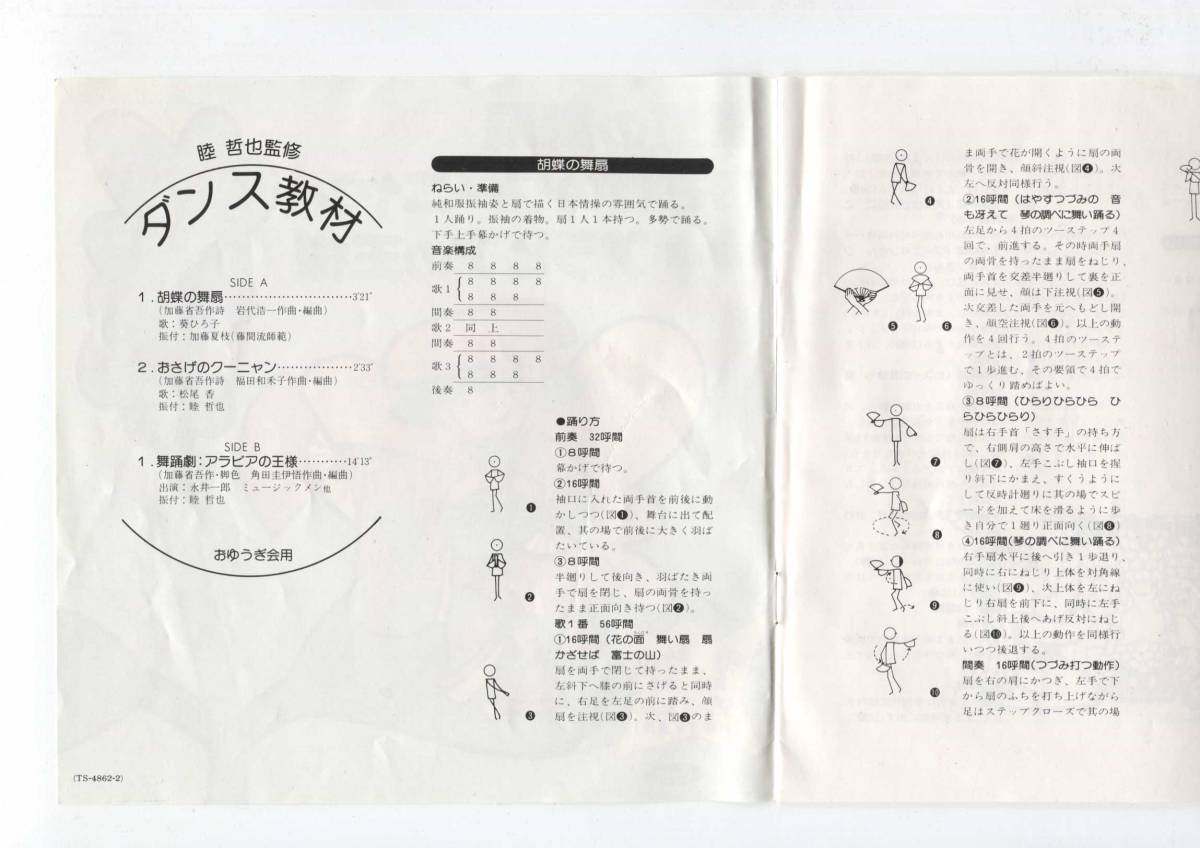 睦 哲也監修
ダンス教材
SIDE A
1.胡蝶の舞扇…………………………3'21"
(加藤省吾作詩 岩代浩一作曲・編曲)
歌:葵ひろ子
振付:加藤夏枝(藤間流師範)
2.おさげのクーニャン………………2'33"
(加藤省吾作詩 福田和禾子作曲・編曲)
歌:松尾 香
振付:睦 哲也
SIDE B
1.舞踊劇:アラビアの王様…………14'13"
(加藤省吾作・脚色 角田圭伊悟作曲・編曲)
出演:永井一郎 ミュージックメン他
振付:睦 哲也
おゆうぎ会用
(TS-4862-2)
胡蝶の舞扇
ねらい・準備
純和服振袖姿と扇で描く日本情操の雰囲気で踊る。
1人踊り。振袖の着物。扇1人1本持つ。多勢で踊る。
下手上手幕かげで待つ。
音楽構成
前奏 8 8 8 8
歌1 8 8 8 8
8 8 8
間奏 8 8
歌2 同 上
間奏 8 8
歌3 8 8 8 8
8 8 8
後奏 8
●踊り方
前奏 32呼間
①8呼間
幕かげで待つ。
②16呼間
袖口に入れた両手首を前後に動
かしつつ(図❶)、舞台に出て配
置、其の場で前後に大きく羽ば
たいている。
③8呼間
半廻りして後向き、羽ばたき両
手で扇を閉じ、扇の両骨を持っ
たまま正面向き待つ(図❷)。
歌1番 56呼間
①16呼間(花の面 舞い扇 扇
かざせば 富士の山)
扇を両手で閉じて持ったまま、
左斜下へ膝の前にさげると同時
に、右足を左足の前に踏み、顔
扇を注視(図❸)。次、図❸のま
❶
❷
❸
ま両手で花が開くように扇の両
骨を開き、顔斜注視(図❹)。次
左へ反対同様行う。
②16呼間(はやすつづみの 音
も冴えて 琴の調べに舞い踊る)
左足から4拍のツーステップ4
回で、前進する。その時両手扇
の両骨を持ったまま扇をねじり、
両手首を交差半廻りして裏を正
面に見せ、顔は下注視(図❺)。
次交差した両手を元へもどし開
き、顔空注視(図❻)。以上の動
作を4回行う。4拍のツーステ
ップとは、2拍のツーステップ
で1歩進む、その要領で4拍で
ゆっくり踏めばよい。
③8呼間(ひらりひらひら ひ
らひらひらり)
扇は右手首「さす手」の持ち方
で、右側肩の高さで水平に伸ば
し(図❼)、左手こぶし袖口を握
り斜下にかまえ、すくうように
して反時計廻りに其の場でスピ
ードを加えて床を滑るように歩
き自分で1廻り正面向く(図❽)
④16呼間(琴の調べに舞い踊る)
右手扇水平に後へ引き1歩退り、
同時に右にねじり上体を対角線
に使い(図❾)、次上体を左にね
じり右扇を前下に、同時に左手
こぶし斜上後へあげ反対にねじ
る(図❿)。以上の動作を同様行
いつつ後退する。
間奏 16呼間(つづみ打つ動作)
扇を右の肩にかつぎ、左手で下
から扇のふちを打ち上げながら
足はステップクローズで其の場
❹
❺ ❻
❼
❽
❾
❿